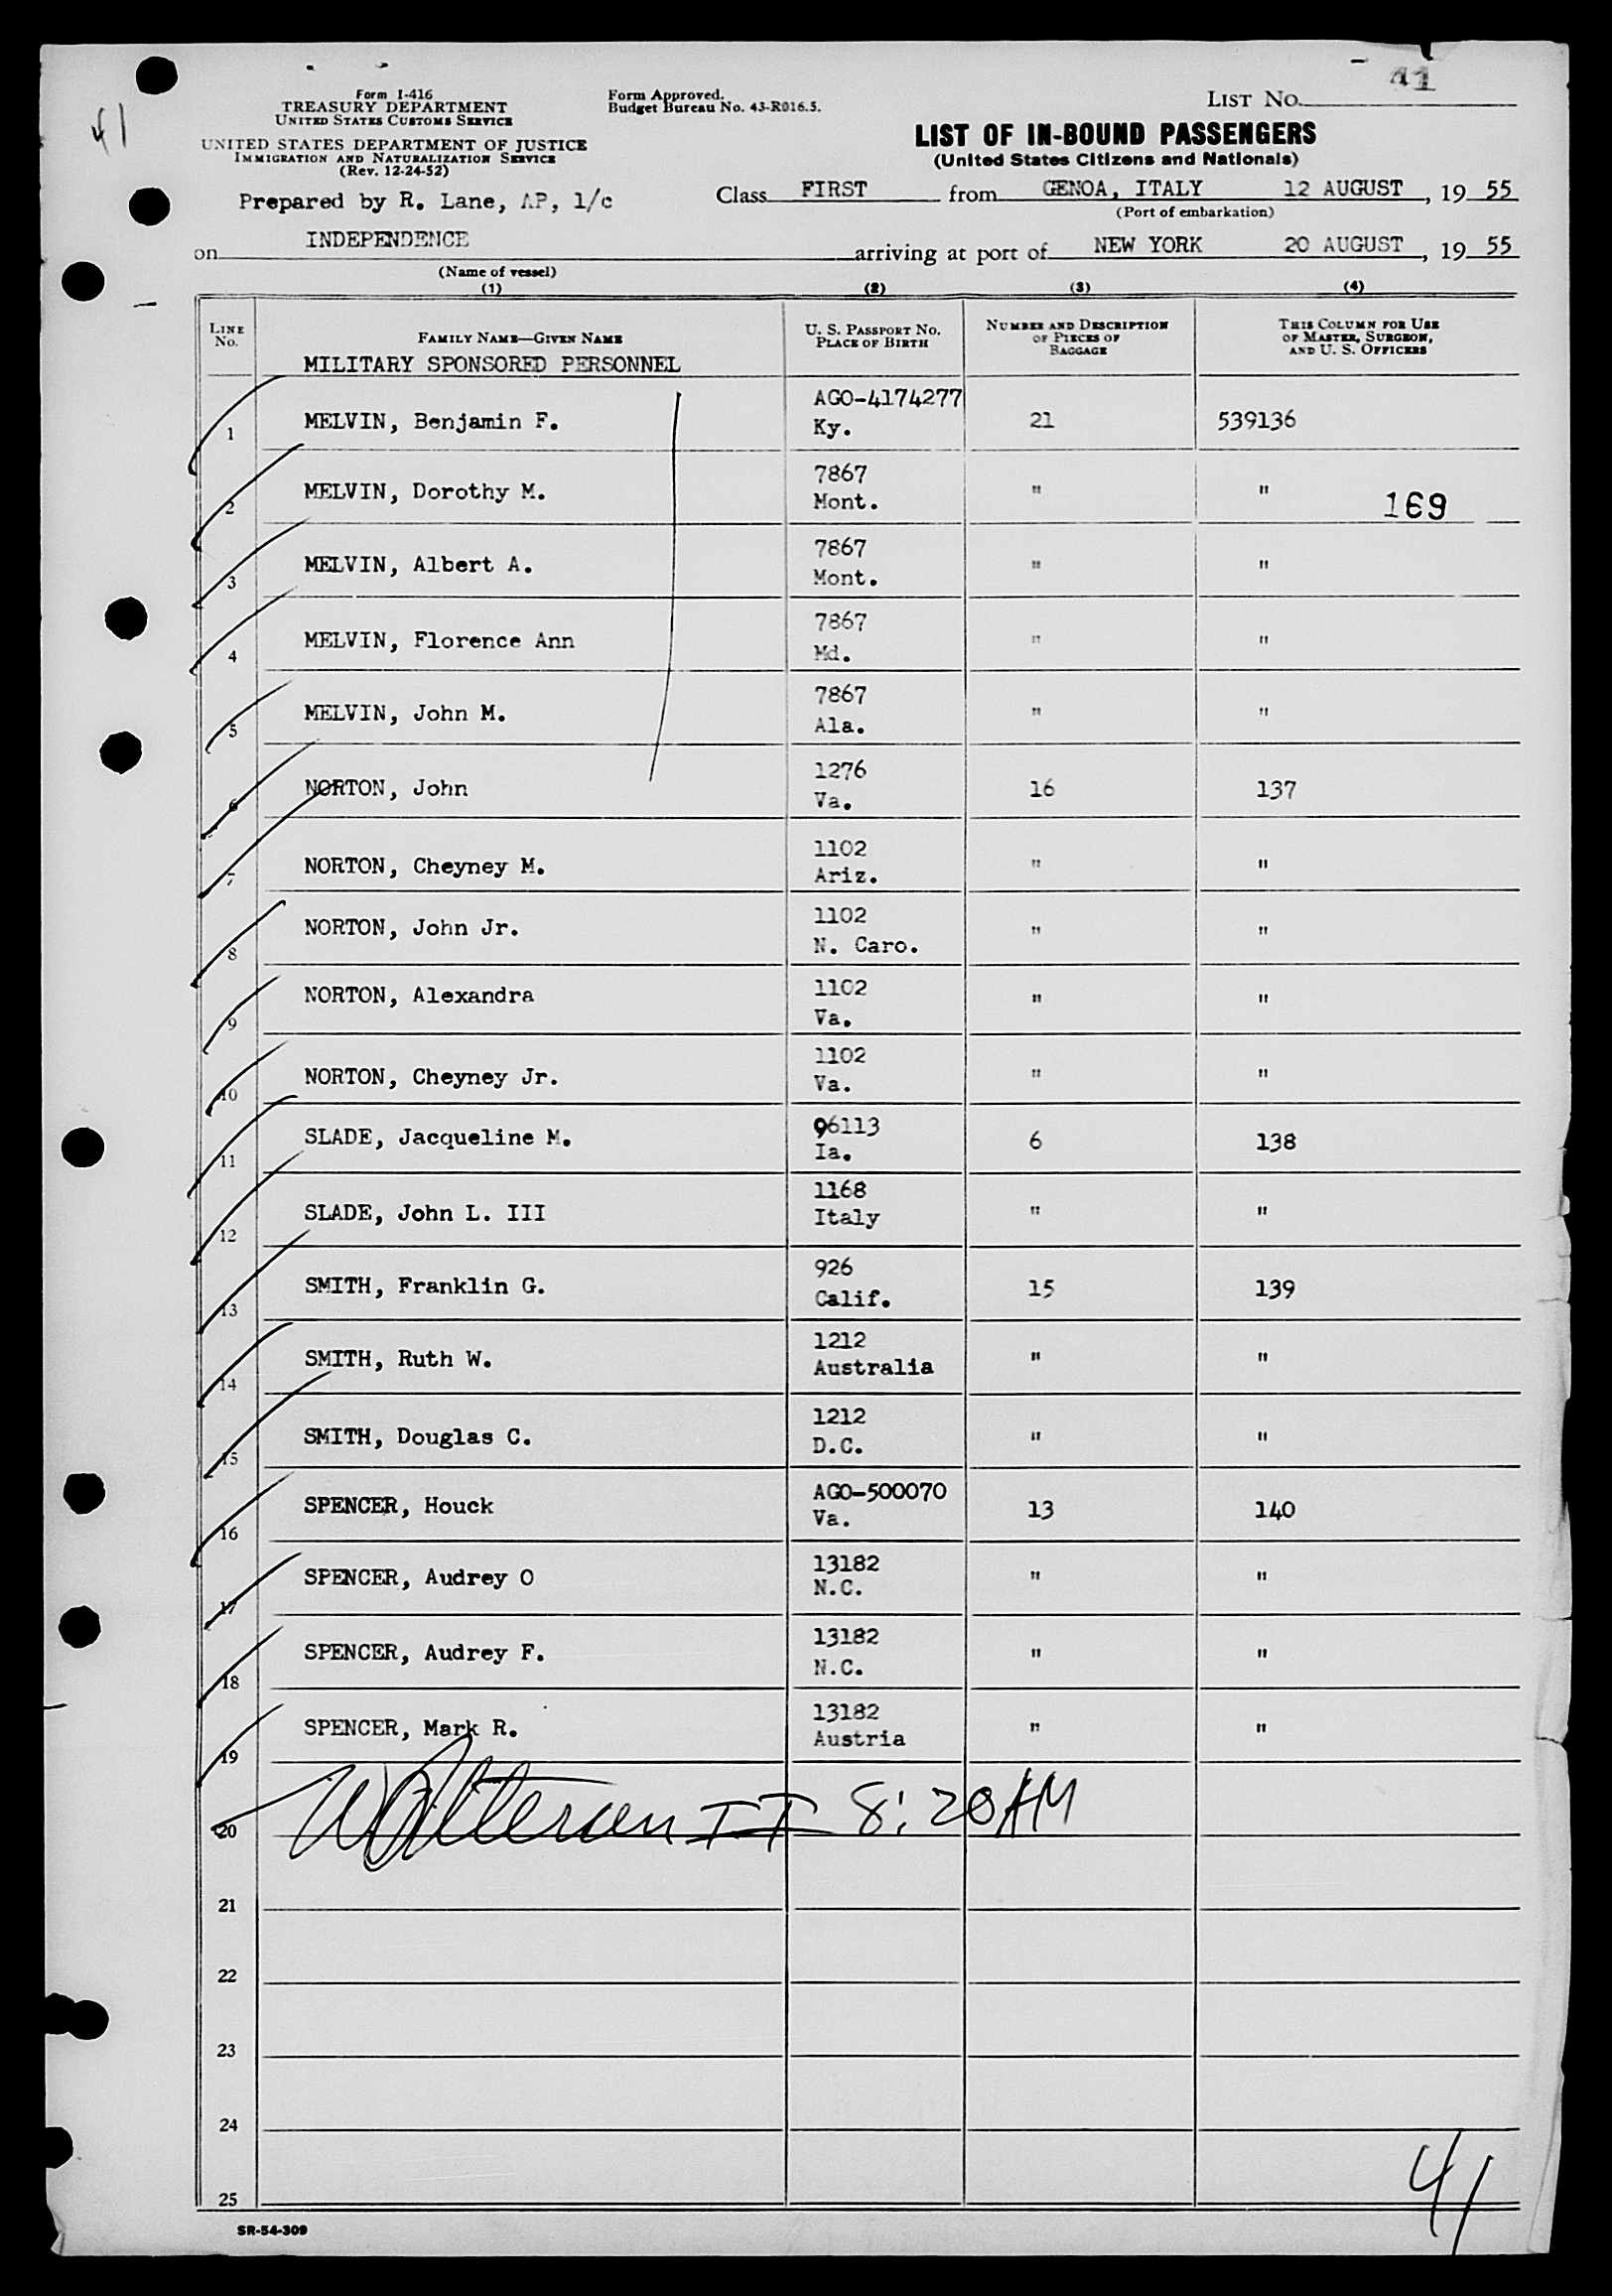 41
41
Form I-416
TREASURY DEPARTMENT
UNITED STATES CUSTOMS SERVICE
UNITED STATES DEPARTMENT OF JUSTICE
IMMIGRATION AND NATURALIZATION SERVICE
(Rev. 12-24-52)
Form Approved.
Budget Bureau No. 43-R016.5.
LIST No.
LIST OF IN-BOUND PASSENGERS
(United States Citizens and Nationals)
Prepared by R. Lane, AP, 1/c
Class FIRST from GENOA, ITALY 12 AUGUST, 19 55
(Port of embarkation)
on INDEPENDENCE arriving at port of NEW YORK 20 AUGUST, 19 55
(Name of vessel)
(1) (2) (3) (4)
LINE No. FAMILY NAME—GIVEN NAME U. S. PASSPORT No. PLACE OF BIRTH NUMBER AND DESCRIPTION OF PIECES OF BAGGAGE THIS COLUMN FOR USE OF MASTER, SURGEON, AND U. S. OFFICERS
MILITARY SPONSORED PERSONNEL
1 MELVIN, Benjamin F. AGO-4174277 Ky. 21 539136
2 MELVIN, Dorothy M. 7867 Mont. " " 169
3 MELVIN, Albert A. 7867 Mont. " "
4 MELVIN, Florence Ann 7867 Md. " "
5 MELVIN, John M. 7867 Ala. " "
6 NORTON, John 1276 Va. 16 137
7 NORTON, Cheyney M. 1102 Ariz. " "
8 NORTON, John Jr. 1102 N. Caro. " "
9 NORTON, Alexandra 1102 Va. " "
10 NORTON, Cheyney Jr. 1102 Va. " "
11 SLADE, Jacqueline M. 96113 Ia. 6 138
12 SLADE, John L. III 1168 Italy " "
13 SMITH, Franklin G. 926 Calif. 15 139
14 SMITH, Ruth W. 1212 Australia " "
15 SMITH, Douglas C. 1212 D.C. " "
16 SPENCER, Houck AGO-500070 Va. 13 140
17 SPENCER, Audrey O 13182 N.C. " "
18 SPENCER, Audrey F. 13182 N.C. " "
19 SPENCER, Mark R. 13182 Austria " "
20 II 8:20 AM
21
22
23
24
25
41
SR-54-309